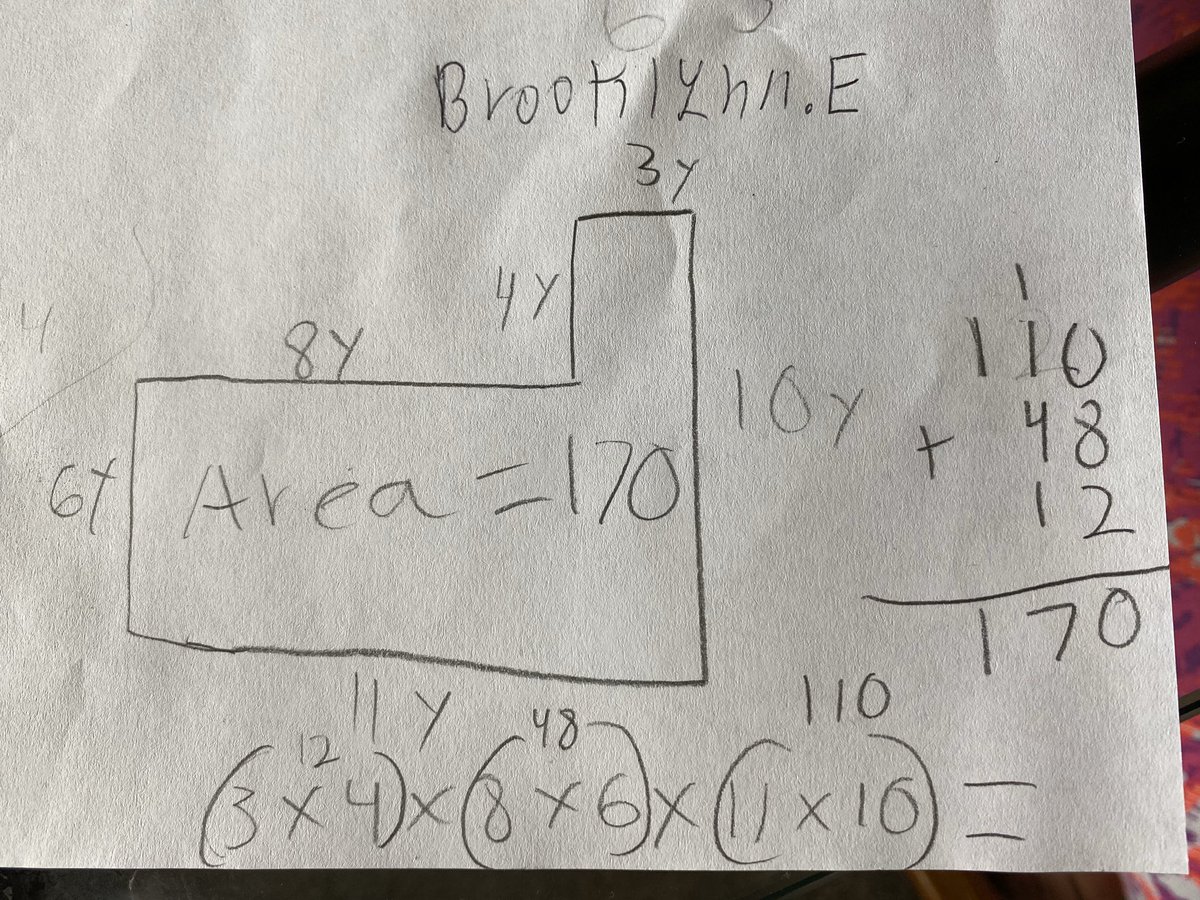 Brooklynn.E
3y
4y
8y
10y
6y
Area = 170
11y
1
110
+ 48
12
170
12 48 110
(3 x 4) x (8 x 6) x (11 x 10) =
4